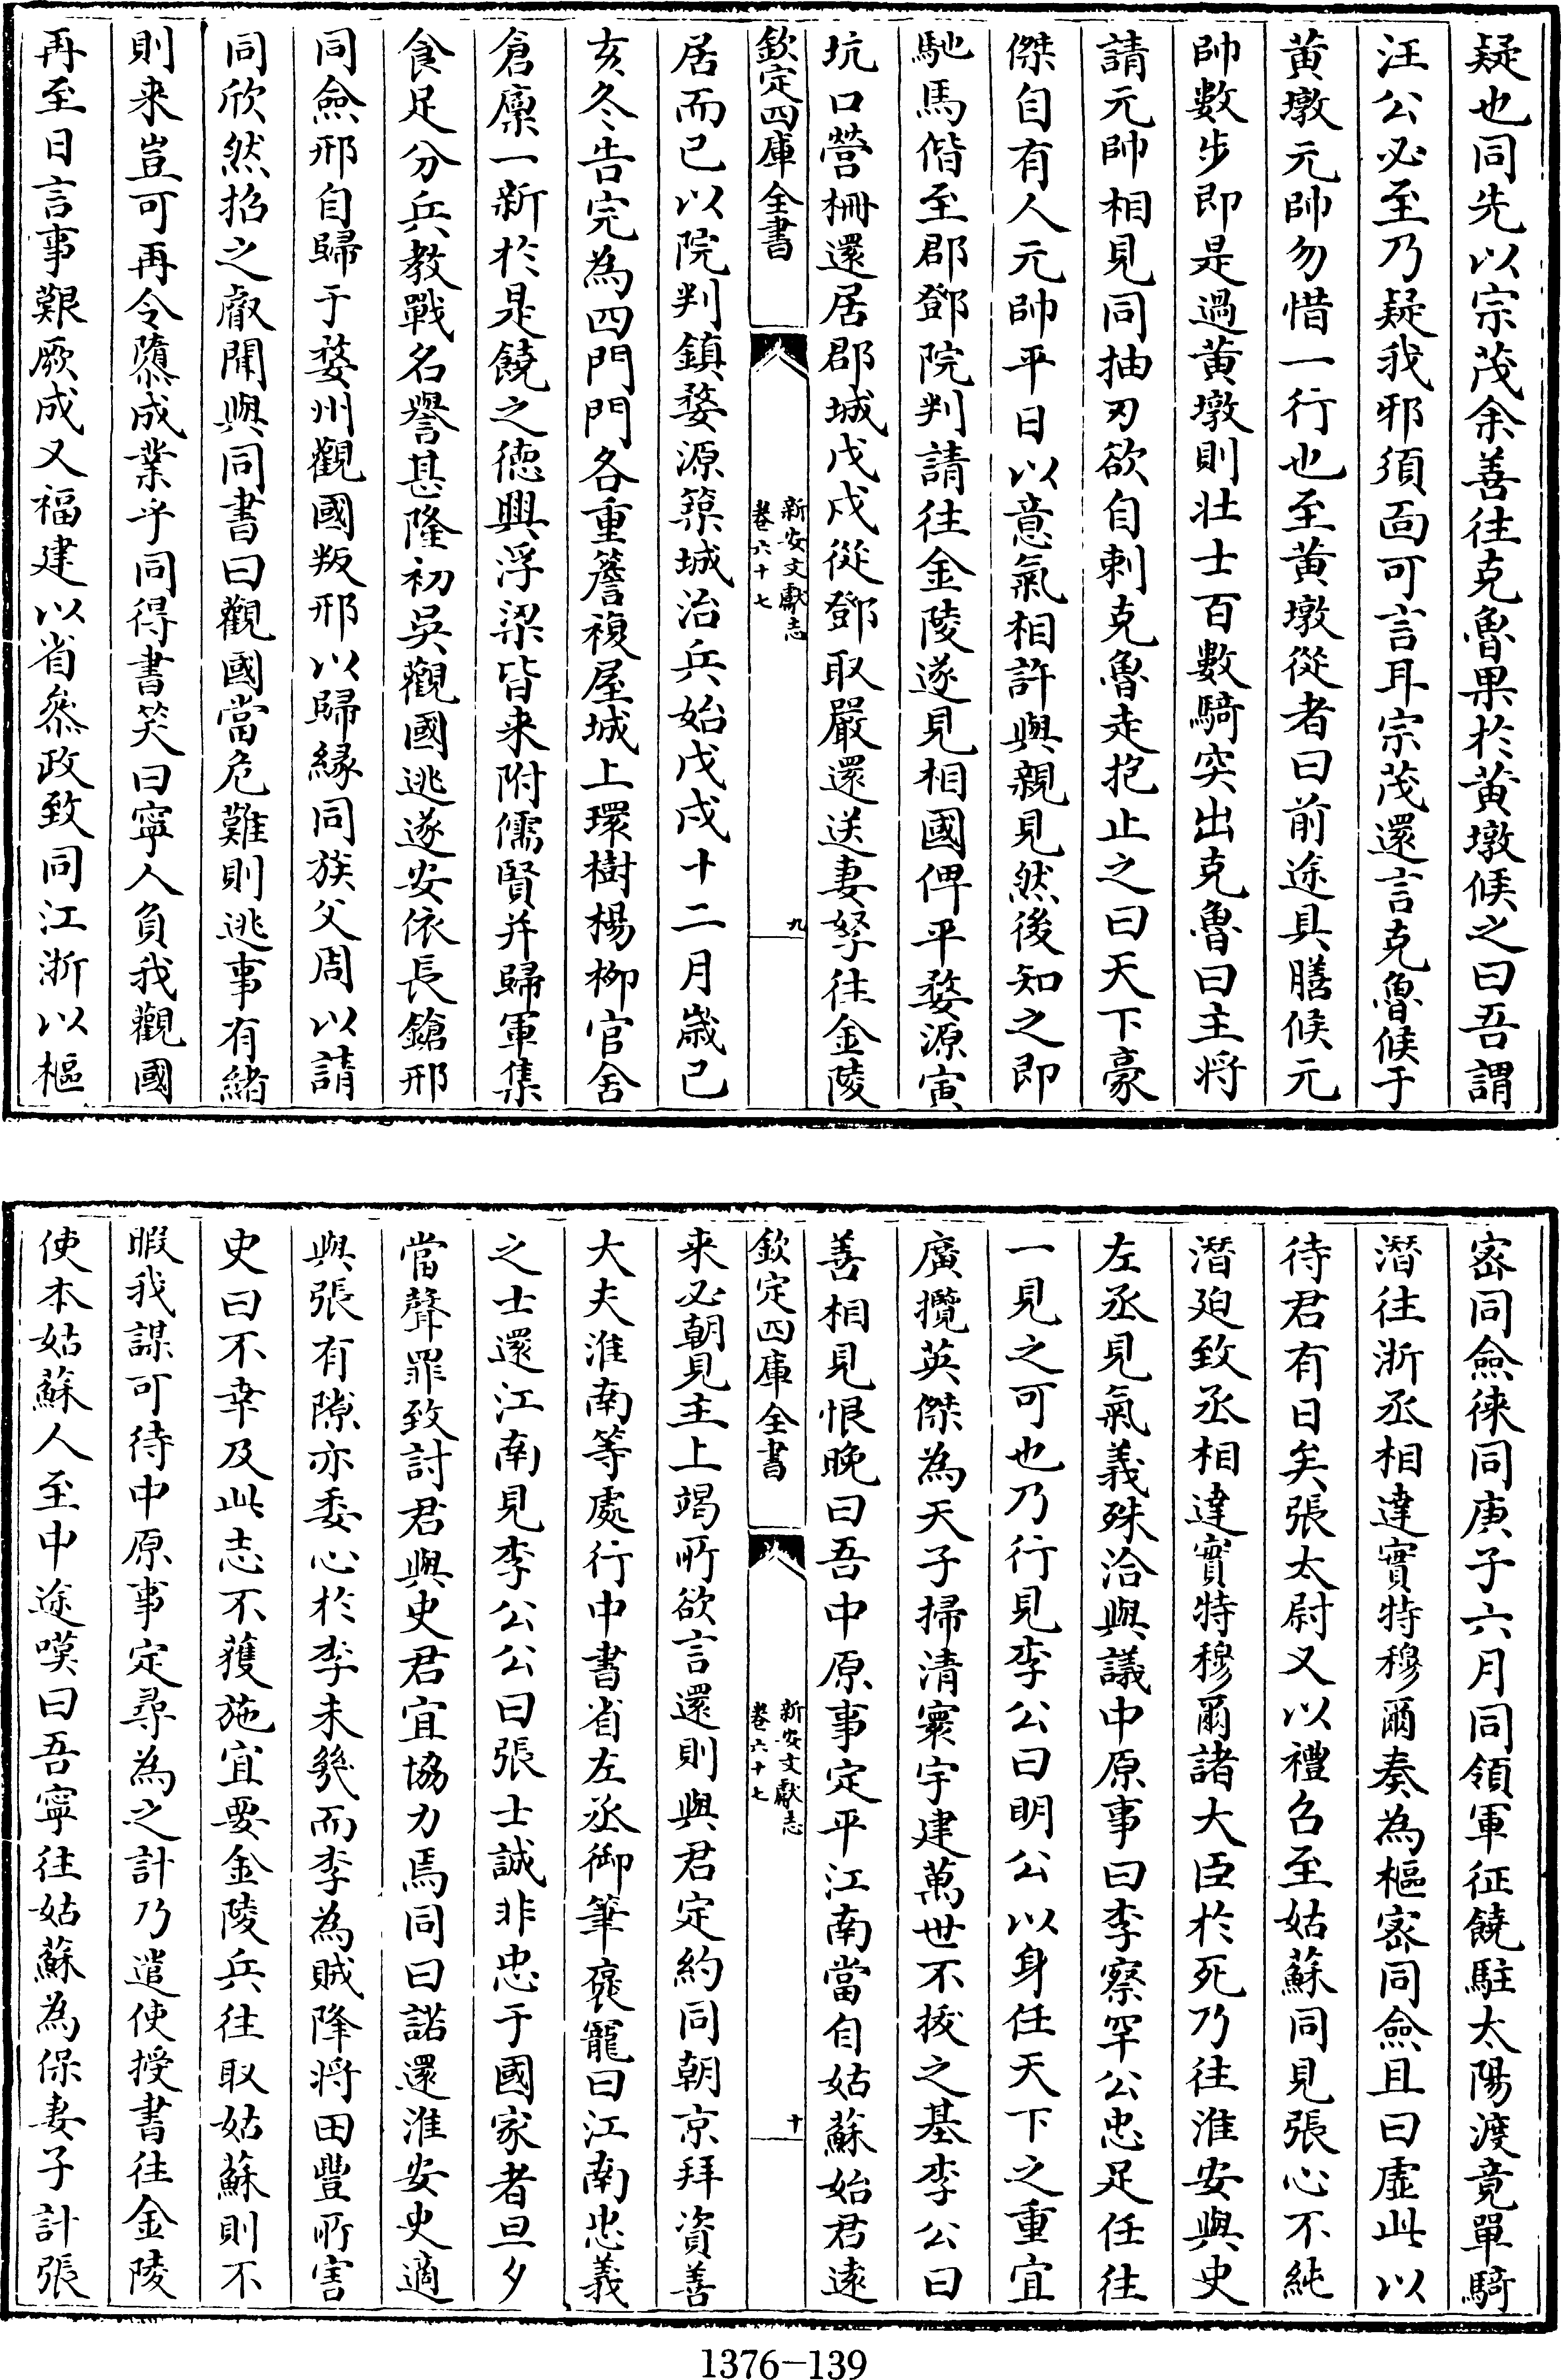 疑也同先以宗茂余善往克魯果於黄墩候之曰吾謂
汪公必至乃疑我邪須面可言耳宗茂還言克魯候于
黄墩元帥勿惜一行也至黄墩從者曰前途具膳候元
帥數步即是過黄墩則壯士百數騎突出克魯曰主將
請元帥相見同抽刃欲自刺克魯走抱止之曰天下豪
傑自有人元帥平日以意氣相許與親見然後知之即
馳馬偕至郡鄧院判請往金陵遂見相國俾平婺源寅
坑口營柵還居郡城戊戌從鄧取嚴還送妻孥往金陵
欽定四庫全書
新安文獻志
卷六十七
九
居而已以院判鎮婺源築城治兵始戊戌十二月歲已
亥冬告完為四門門各重簷複屋城上環樹楊栁官舍
倉廩一新於是饒之德興浮梁皆来附儒賢并歸軍集
食足分兵教戰名譽甚隆初吳觀國逃遂安依長鎗邢
同僉邢自歸于婺州觀國叛邢以歸緣同族父周以請
同欣然招之㕡聞與同書曰觀國當危難則逃事有緒
則来豈可再令隳成業乎同得書笑曰寧人負我觀國
再至日言事艱厥成又福建以省叅政致同江浙以樞
宻同僉徠同庚子六月同領軍征饒駐太陽渡竟單騎
潛往浙丞相達實特穆爾奏為樞宻同僉且曰虛此以
待君有日矣張太尉又以禮召至姑蘇同見張心不純
潛廹致丞相達實特穆爾諸大臣於死乃往淮安與史
左丞見氣義殊洽與議中原事曰李察罕公忠足任往
一見之可也乃行見李公曰明公以身任天下之重宜
廣攬英傑為天子掃清寰宇建萬世不拔之基李公曰
善相見恨晚曰吾中原事定平江南當自姑蘇始君遠
欽定四庫全書
新安文獻志
卷六十七
十
来必朝見主上竭所欲言還則與君定約同朝京拜資善
大夫淮南等處行中書省左丞御筆褒寵曰江南忠義
之士還江南見李公公曰張士誠非忠于國家者旦夕
當聲罪致討君與史君宜協力焉同曰諾還淮安史適
與張有隙亦委心於李未幾而李為賊降將田豐所害
史曰不幸及此志不獲施宜要金陵兵往取姑蘇則不
暇我謀可待中原事定尋為之計乃遣使授書往金陵
使本姑蘇人至中途嘆曰吾寧往姑蘇為保妻子計張
1376-139